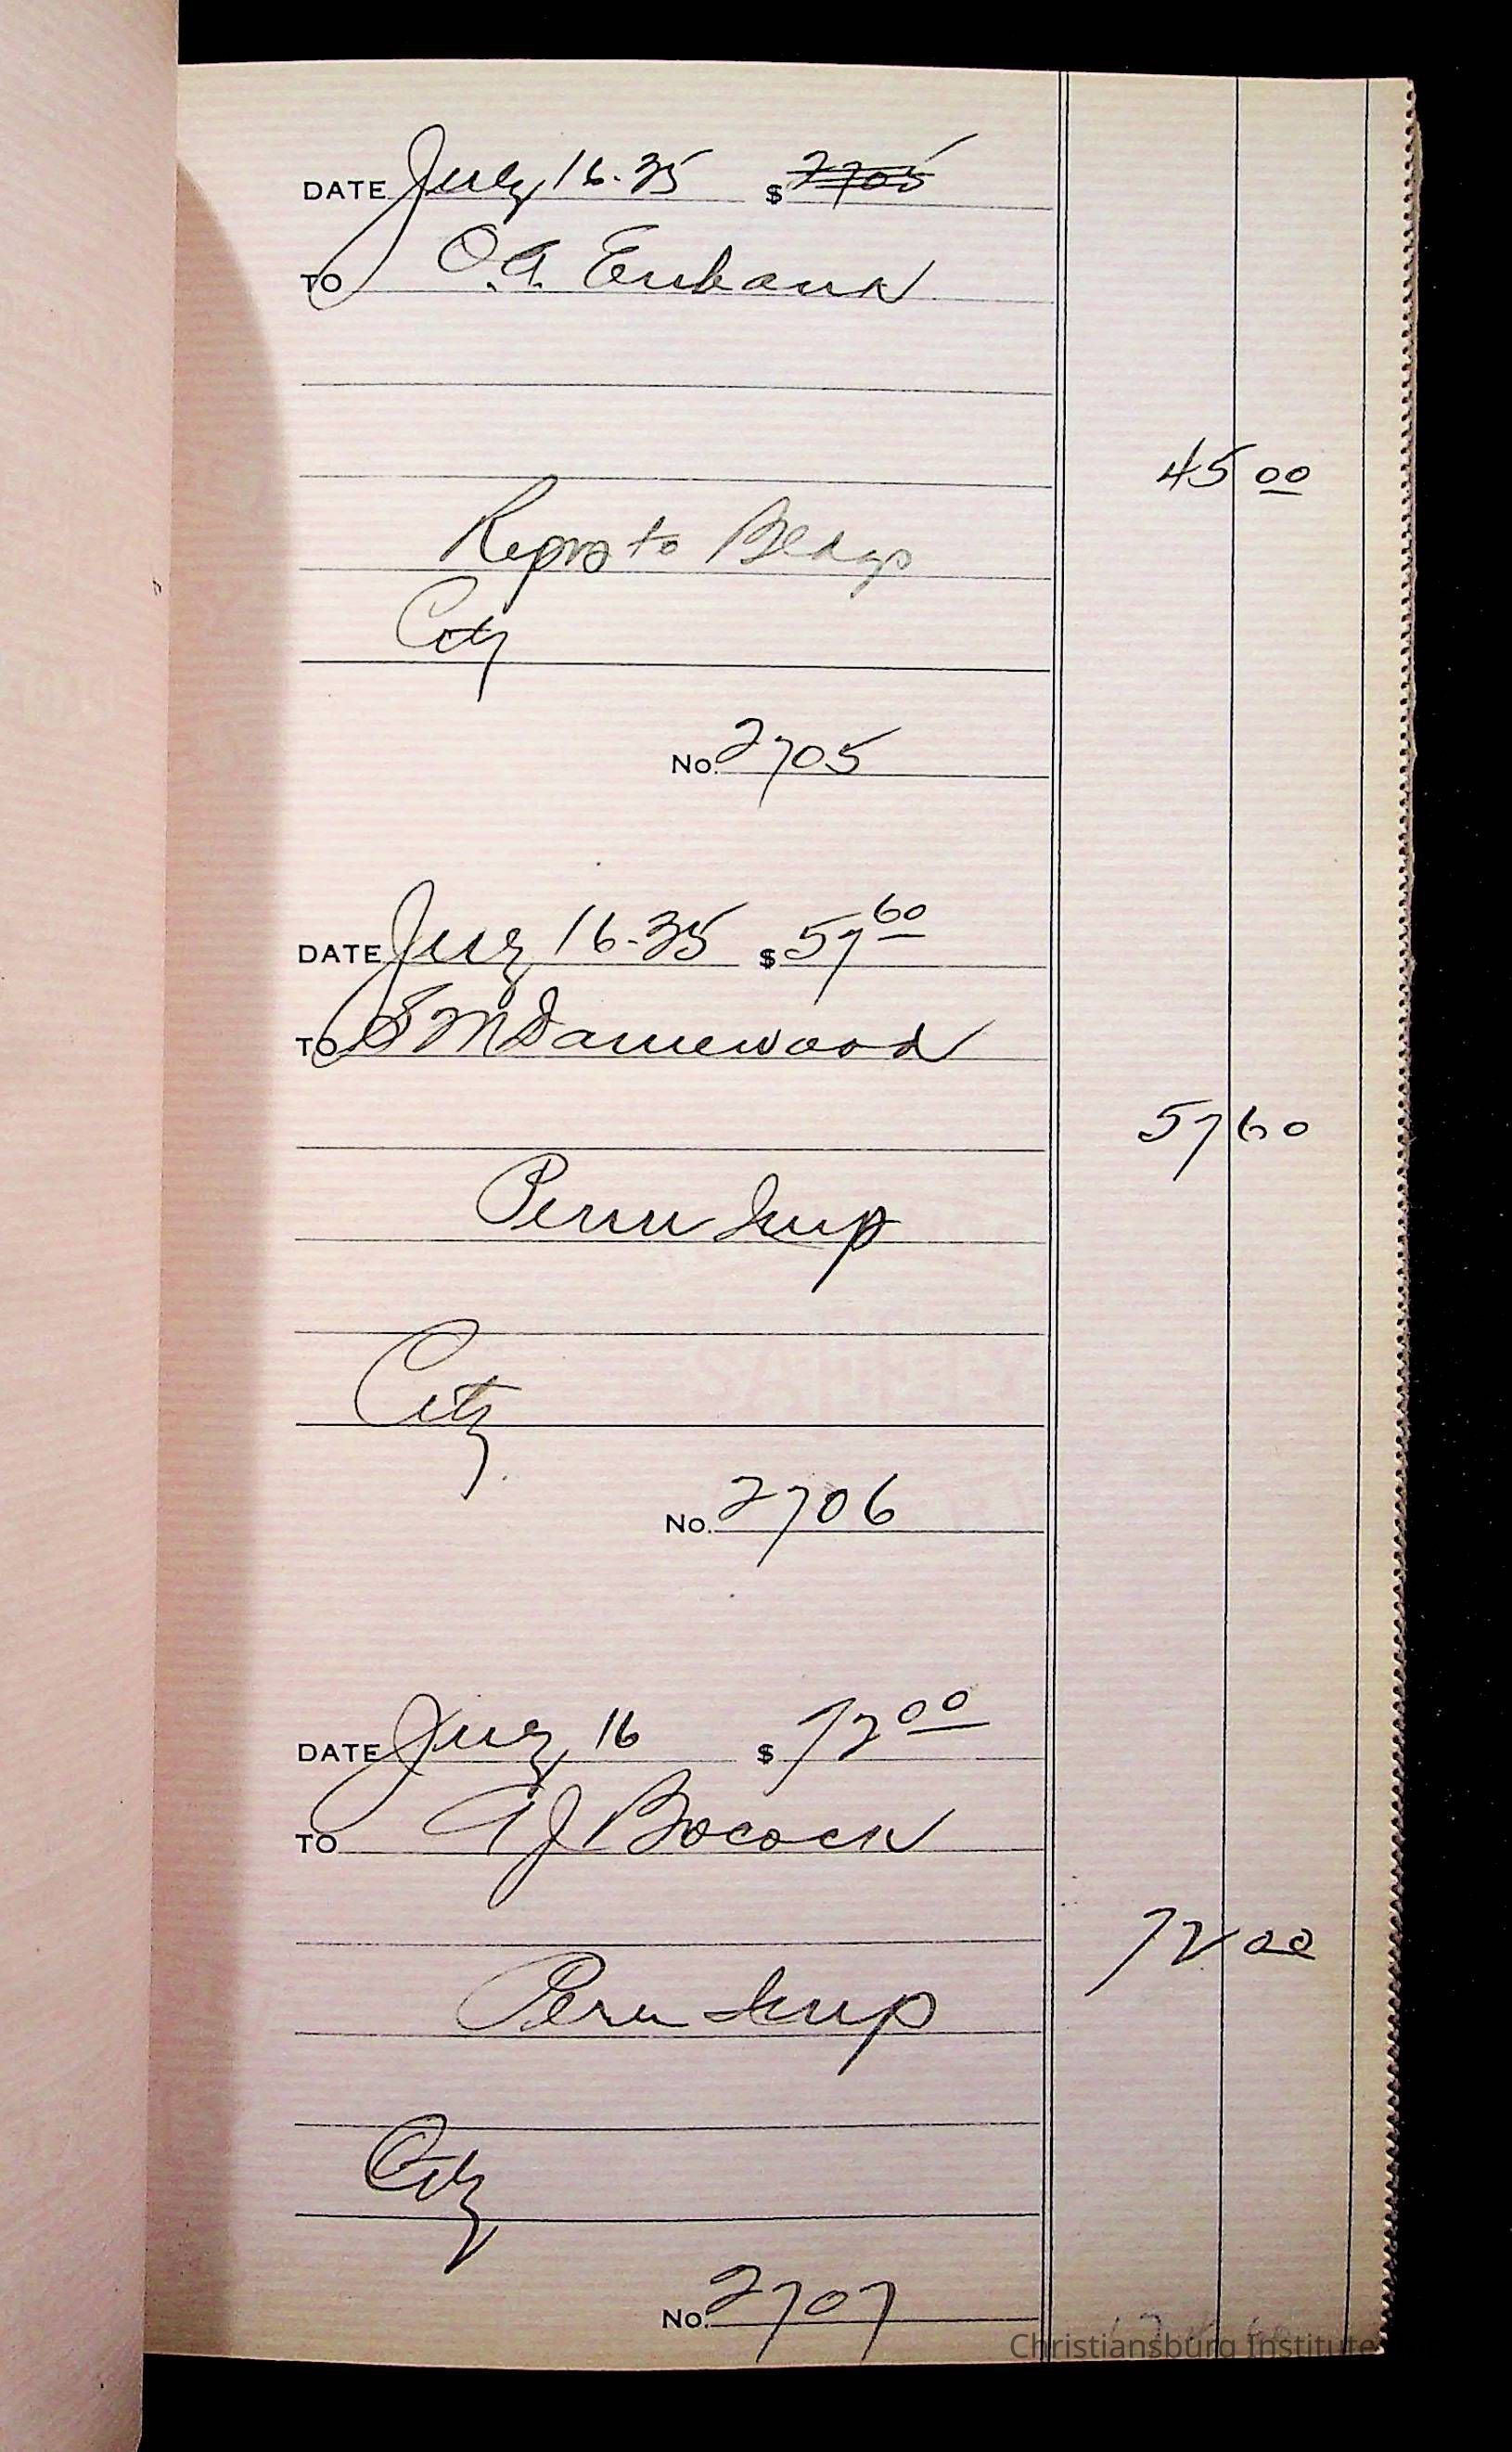 DATE July 16-35 $ 2705
TO O.A. Eubank
45 00
Reprs to Bldgs
City
No. 2705
DATE July 16-35 $ 57 60
TO S M Damewood
57 60
Perm Imp
City
No. 2706
DATE July 16 $ 72 00
TO A J Bocock
72 00
Perm Imp
City
No. 2707
Christiansburg Institute